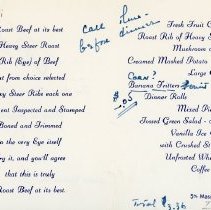 Roast Beef at its best
Heavy Steer Roast
Rib (Eye) of Beef
cut from choice selected
Heavy Steer Ribs each one
ment Inspected and Stamped
Boned and Trimmed
to the very Eye itself
try it, and you'll agree
that this is truly
Roast Beef at its best.
call
before
dinner
Fresh Fruit C
Roast Rib of Heavy S
Mushroom
Creamed Mashed Potato
Large
Corn?
Banana Fritters
$.05
Dinner Rolls
Mixed
Tossed Green Salad
Vanilla Ice
with Crushed S
Unfrosted Wh
Coffee
5% Mass
Total $3.36